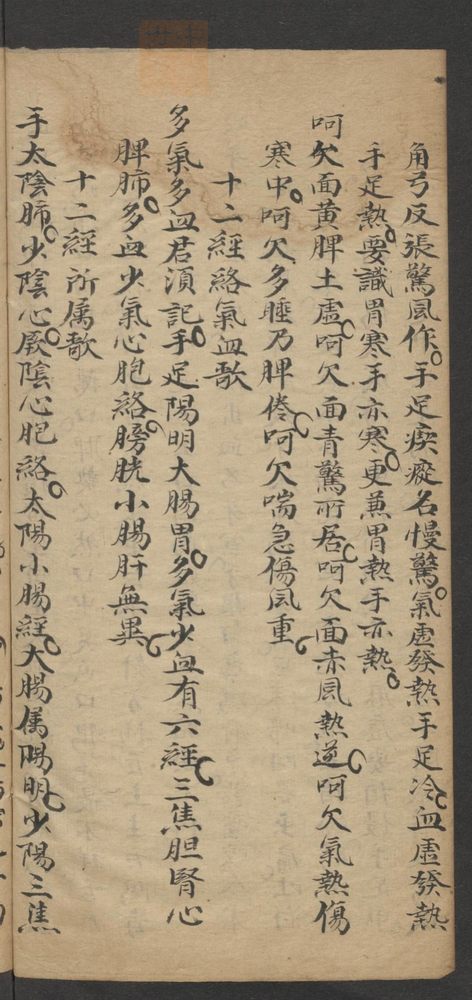 角弓反張驚風作手足瘈瘲名慢驚氣虛發熱手足冷血虛發熱
手足熱要識胃寒手亦寒更兼胃熱手亦熱
呵欠面黃脾土虛呵欠面青驚所居呵欠面赤風熱逆呵欠氣熱傷
寒中呵欠多睡乃脾倦呵欠喘急傷風重
十二經絡氣血歌
多氣多血君須記手足陽明大腸胃多氣少血有六經三焦胆腎心
脾肺多血少氣心胞絡膀胱小腸肝無異
十二經所属歌
手太陰肺少陰心厥陰心胞絡太陽小腸經大腸属陽明少陽三焦